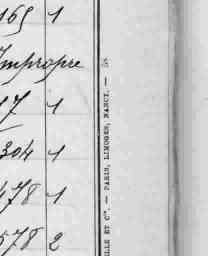 165 1
Impropre
17 1
304 1
478 1
578 2
LLE ET Cie. — PARIS, LIMOGES, NANCY. —